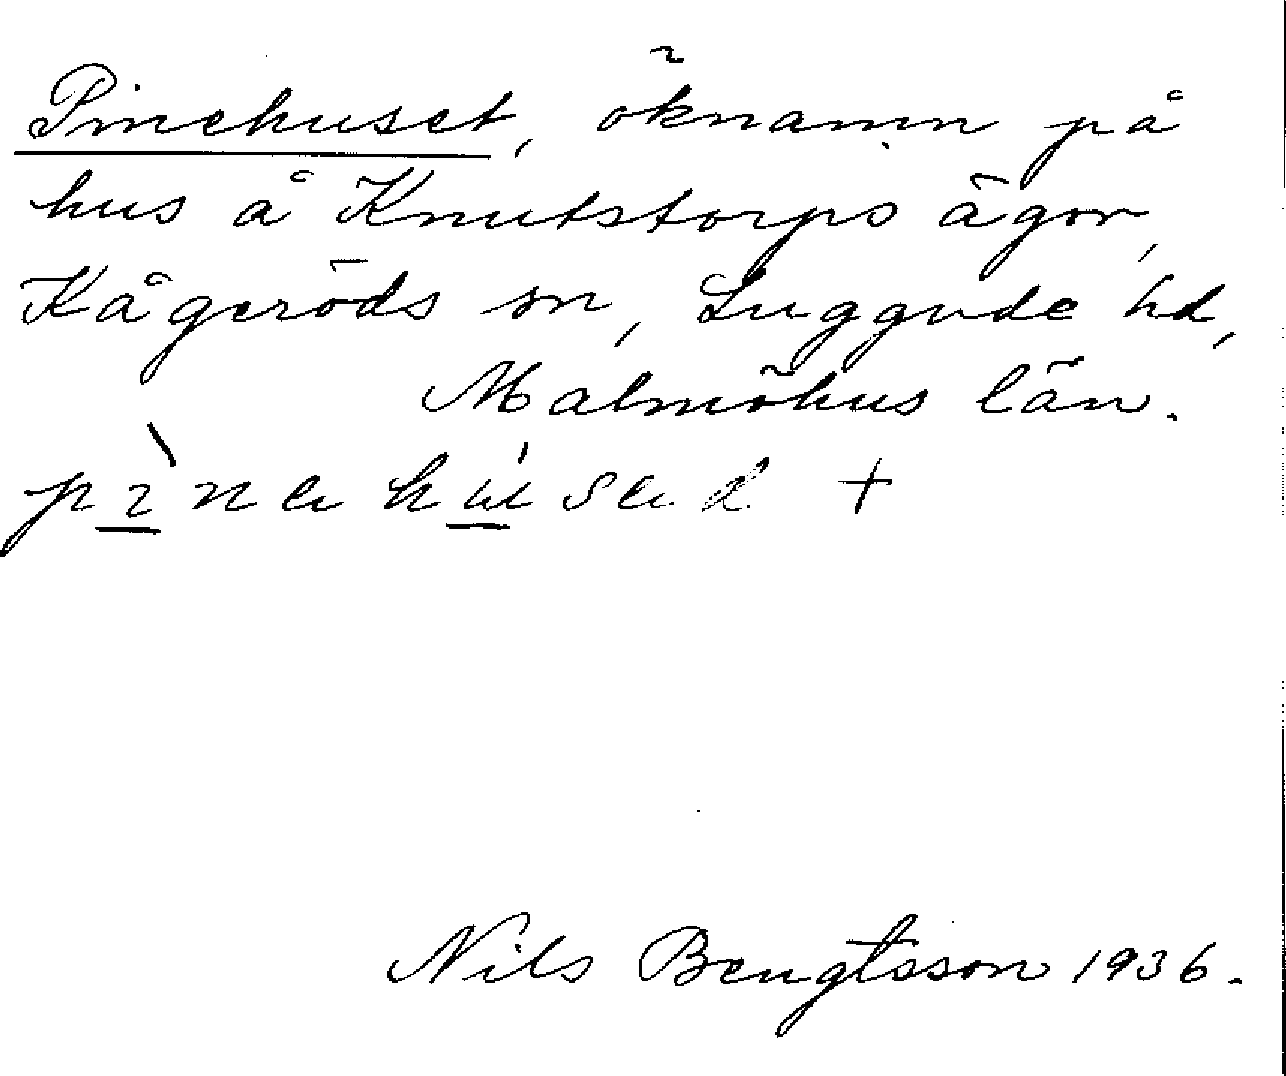 Pinehuset, öknamn på
hus å Knutstorps ägor,
Kågeröds sn, Luggude hd,
Malmöhus län.
Nils Bengtsson 1936.